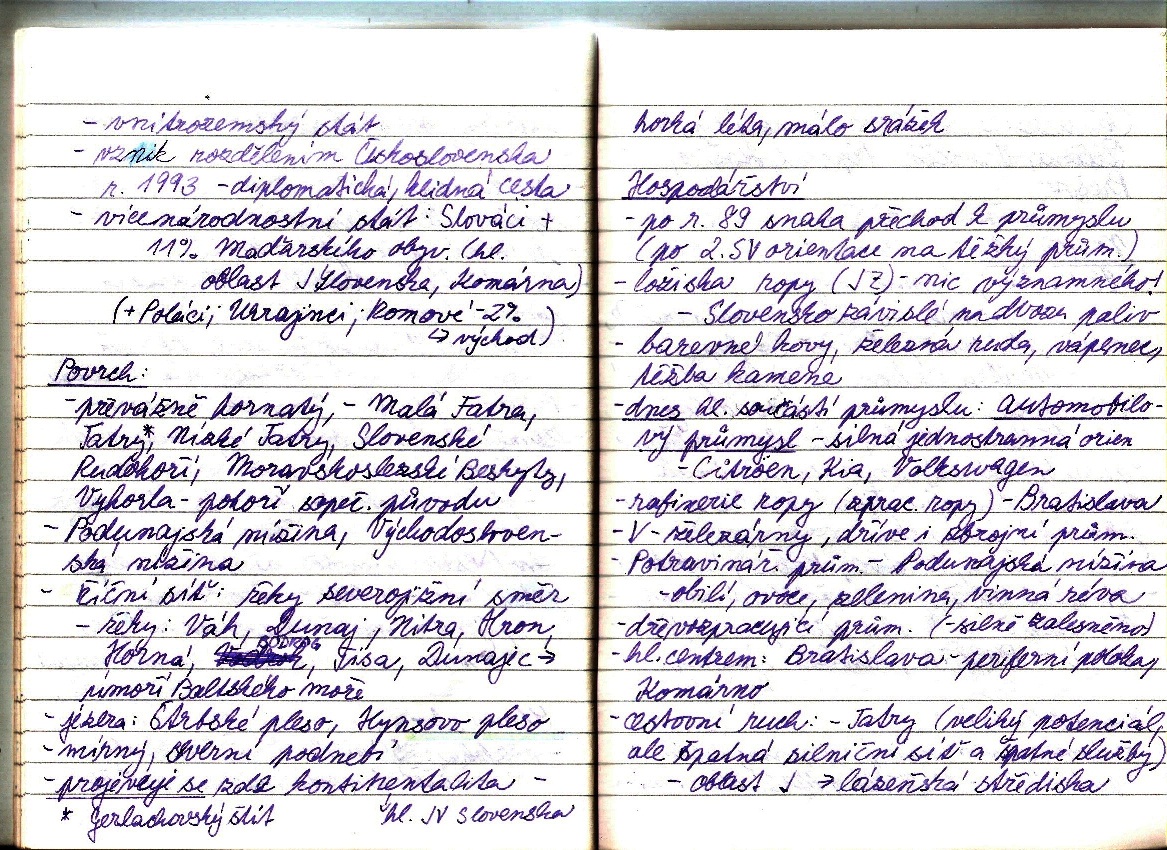 - vnitrozemský stát
- vznik rozdělením Československa
r. 1993 - diplomatická, klidná cesta
- vícenárodnostní stát: Slováci +
11% Maďarského obyv. (hl.
oblast J Slovenska, Komárna)
(+ Poláci; Ukrajinci; Romové - 2%
↳ východ)
Povrch:
- převážně hornatý, - Malá Fatra,
Tatry*, Nízké Tatry, Slovenské
Rudohoří, Moravskoslezské Beskydy,
Vyhorla - pohoří sopeč. původu
- Podunajská nížina, Východosloven-
ská nížina
- říční síť: řeky severojižní směr
- řeky: Váh, Dunaj, Nitra, Hron,
BODROG
Horná, Tisa, Dunajec →
úmoří Baltského moře
- jezera: Štrbské pleso, Hynsovo pleso
- mírný, overní podnebí
- projevuje se zde kontinentalita -
* Gerlachovský štít hl. JV Slovenska
horká léta, málo srážek
Hospodářství
- po r. 89 snaha přechod k průmyslu
(po 2.SV orientace na těžký prům.)
- ložiska ropy (JZ) - nic významného!
- Slovensko závislé na dovozu paliv
- barevné kovy, železná ruda, vápenec,
těžba kamene
- dnes hl. součástí průmyslu: automobilo-
vý průmysl - silná jednostranná orien
- Citröen, Kia, Volkswagen
- rafinerie ropy (zprac. ropy) - Bratislava
- V - železárny, dříve i zbrojní prům.
- Potravinář. prům. - Podunajská nížina
- obilí, ovoce, zelenina, vinná réva
- dřevozpracující prům. (- silně zalesněno)
- hl. centrem: Bratislava - periferní poloha,
Komárno
- cestovní ruch: - Tatry (veliký potenciál,
ale špatná silniční síť a špatné služby)
- oblast J → lázeňská střediska